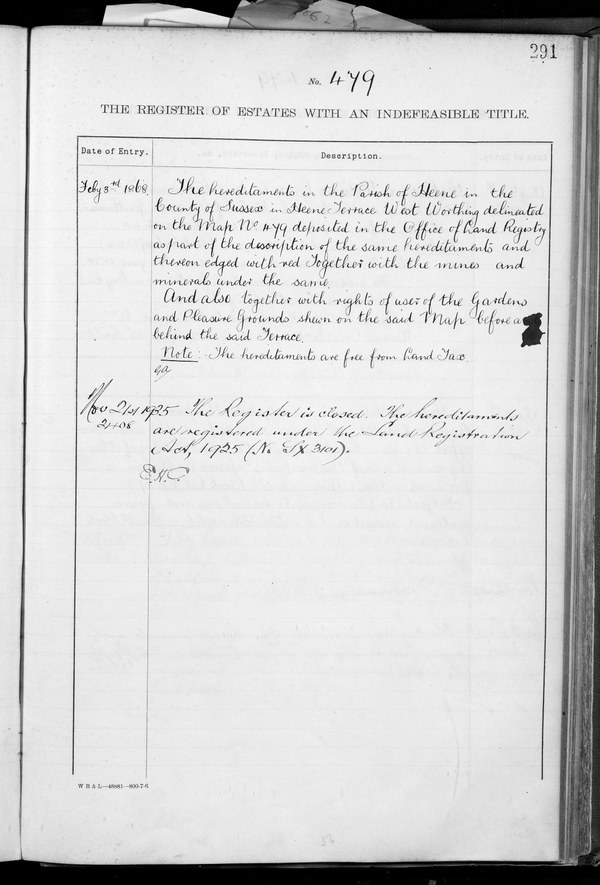 291
No. 479
THE REGISTER OF ESTATES WITH AN INDEFEASIBLE TITLE.
Date of Entry.
Description.
Feby 3rd 1868.
The hereditaments in the Parish of Heene in the
County of Sussex in Heene Terrace West Worthing delineated
on the Map No 479 deposited in the Office of Land Registry
as part of the description of the same hereditaments and
thereon edged with red Together with the mines and
minerals under the same.
And also together with rights of user of the Gardens
and Pleasure Grounds shewn on the said Map before a
behind the said Terrace.
Note:- The hereditaments are free from Land Tax.
Nov 21st 1935 The Register is closed. The hereditaments
are registered under the Land Registration
Act, 1925 (No Sx 3101).
E.H.C.
W B & L—49881—800-7-6